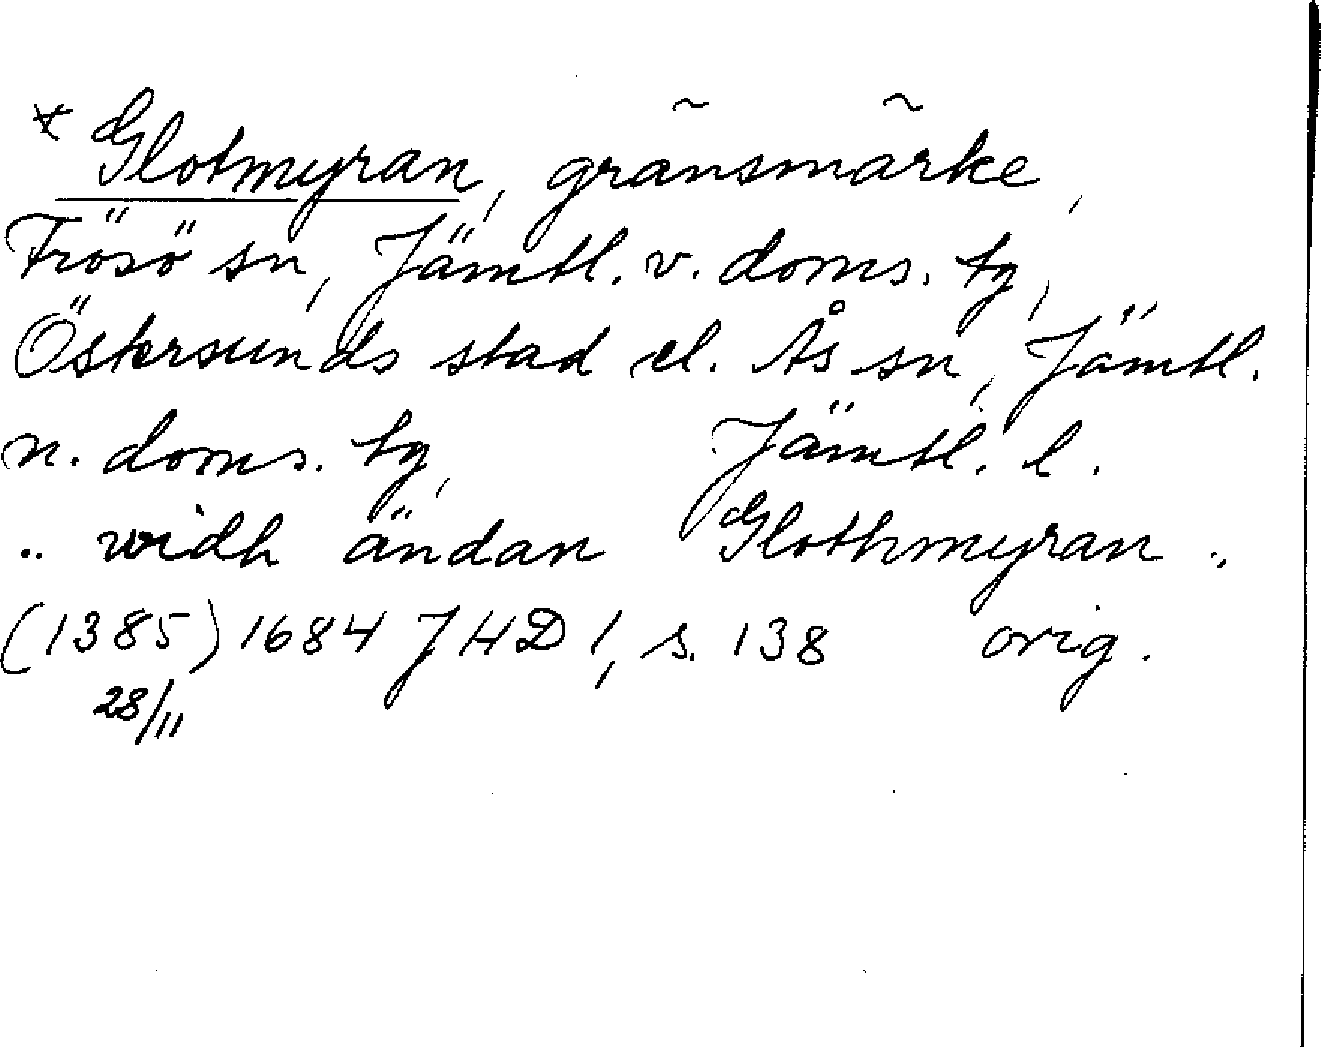 * Glotmyran, gränsmärke,
Frösö sn, Jämtl. v. doms. tg,
Östersunds stad el. Ås sn, Jämtl.
n. doms. tg, Jämtl. l.
.. widh ändan Glothmyran ..
(1385) 1684 JHD 1, s. 138 orig.
28/11